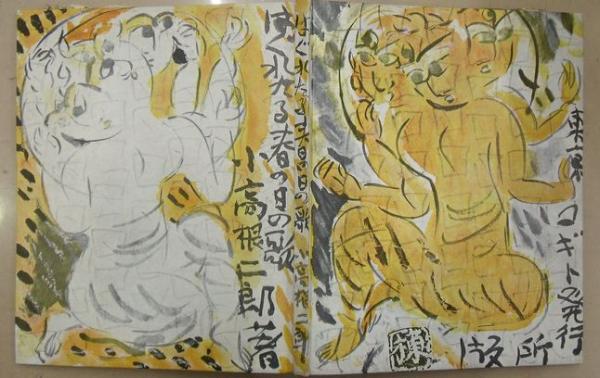 東京 コギト発行
所版
はぐれたる春の日の歌 小高根二郎
はぐれたる春の日の歌
小高根二郎著